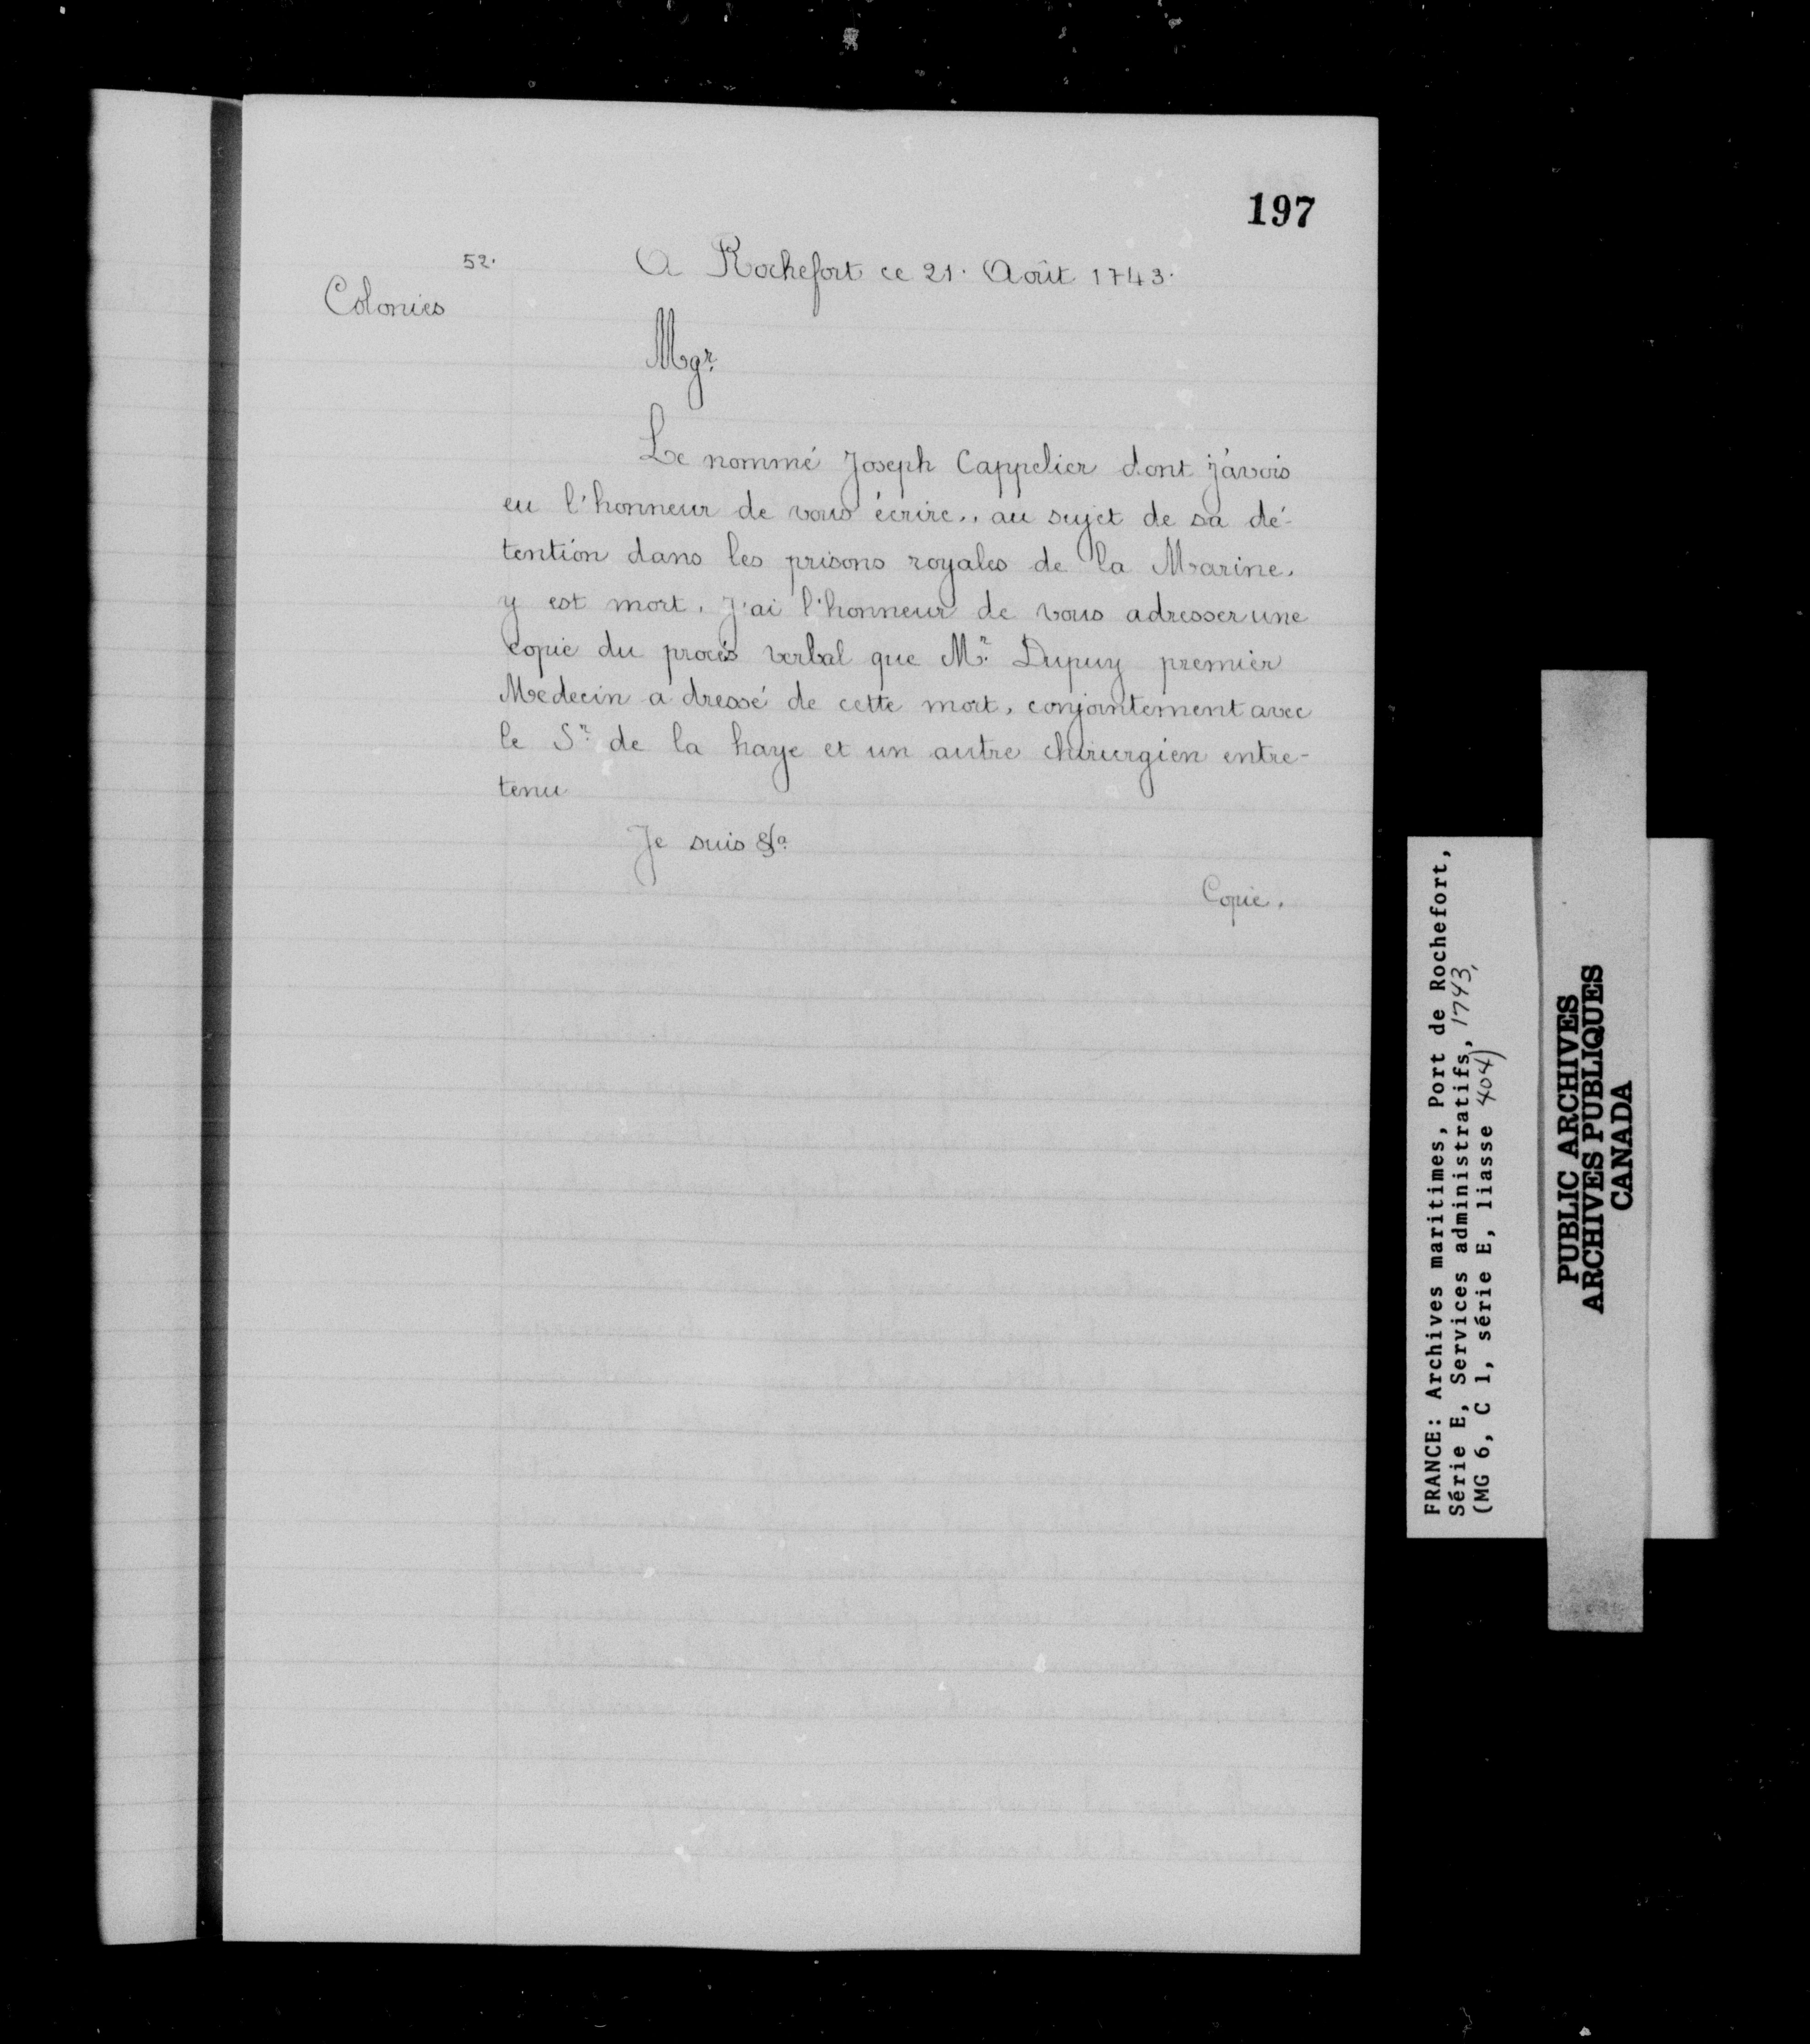 197
52.
A Rochefort ce 21. Août 1743.
Colonies
Mgr.
Le nommé Joseph Cappelier dont j'avois
eu l'honneur de vous écrire,, au sujet de sa dé-
tention dans les prisons royales de la Marine,
y est mort. J'ai l'honneur de vous adresser une
copie du procès verbal que Mr. Dupuy premier
Médecin a dressé de cette mort, conjointement avec
le Sr. de la haye et un autre chirurgien entre-
tenu
Je suis &a.
Copie.
FRANCE: Archives maritimes, Port de Rochefort,
Série E, Services administratifs, 1743,
(MG 6, C 1, série E, liasse 404)
PUBLIC ARCHIVES
ARCHIVES PUBLIQUES
CANADA